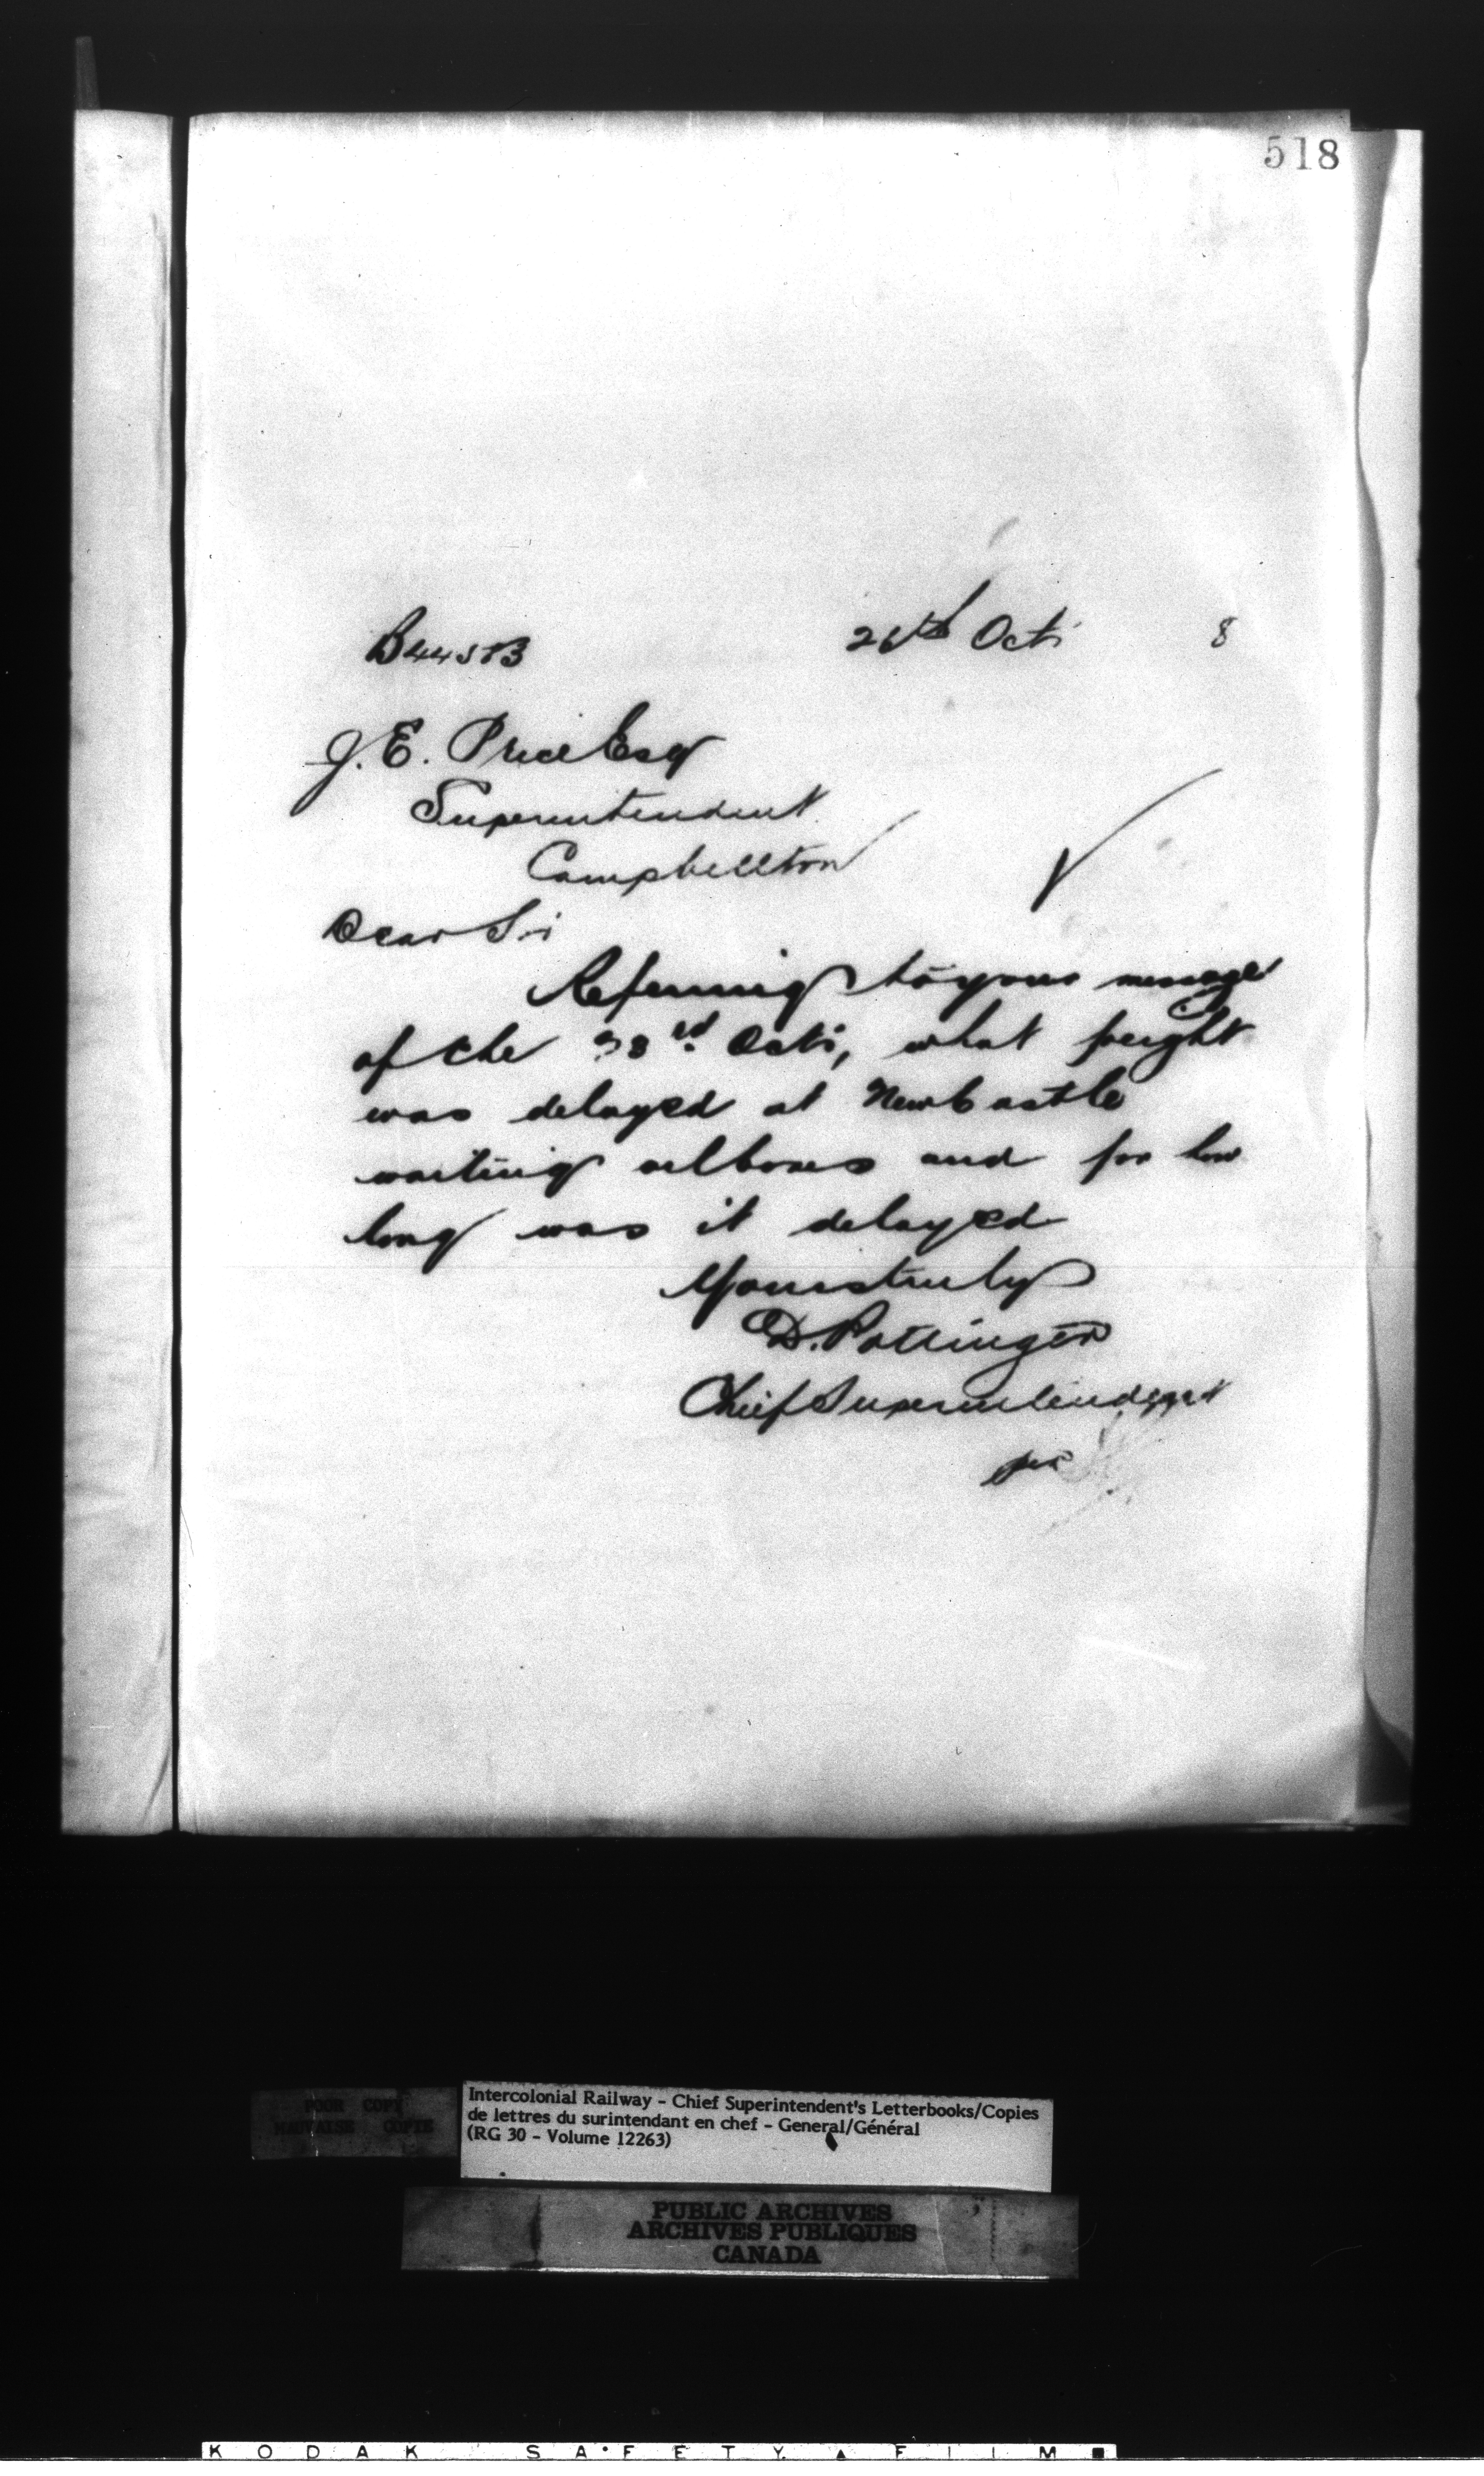 518
B44583
26th Oct. 8
J. E. Price Esq
Superintendent
Campbellton
Dear Sir
Referring to your message
of the 23rd Oct, what freight
was delayed at Newcastle
waiting oilboxes and for how
long was it delayed
Yours truly
D. Pottinger
Chief Superintendent
per
POOR COPY
MAUVAISE COPIE
Intercolonial Railway - Chief Superintendent's Letterbooks/Copies
de lettres du surintendant en chef - General/Général
(RG 30 - Volume 12263)
PUBLIC ARCHIVES
ARCHIVES PUBLIQUES
CANADA
KODAK SAFETY FILM